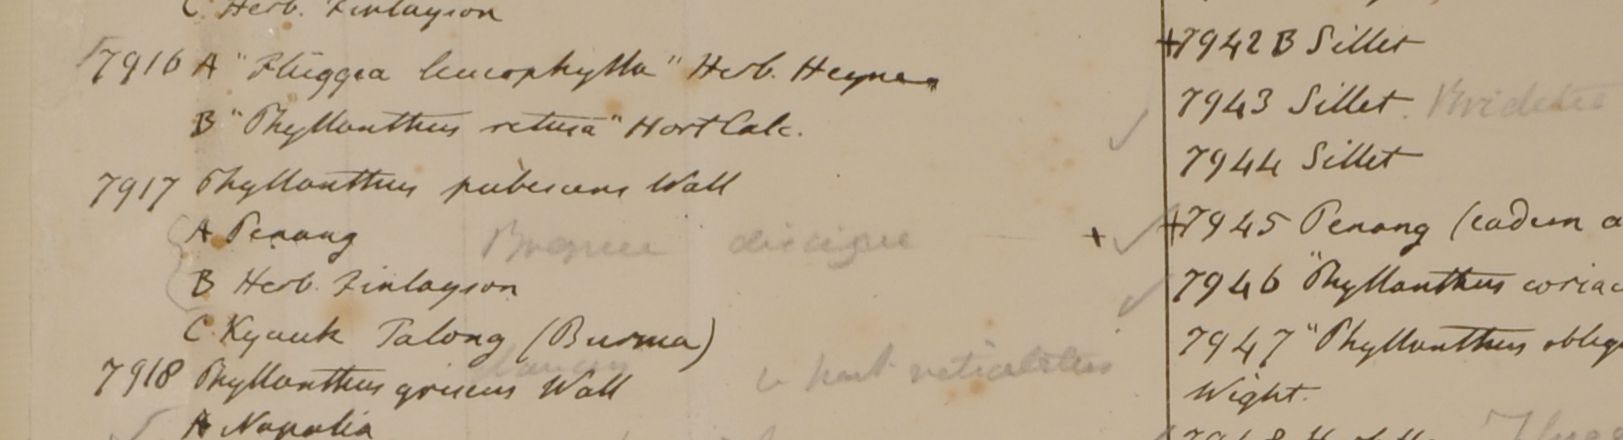 C Herb. Finlayson
7916 A "Fluggea leucophylla" Herb. Heyne
B "Phyllanthus retusa" Hort Calc.
7917 Phyllanthus pubescens Wall
A Penang
B Herb. Finlayson
C. Kyauk Talong (Burma)
7918 Phyllanthus griseus Wall
A Napalia
+7942 B Sillet
7943 Sillet.
7944 Sillet
+7945 Penang (eadem a
7946 "Phyllanthus coriac
7947 "Phyllanthus obliq
Wight.